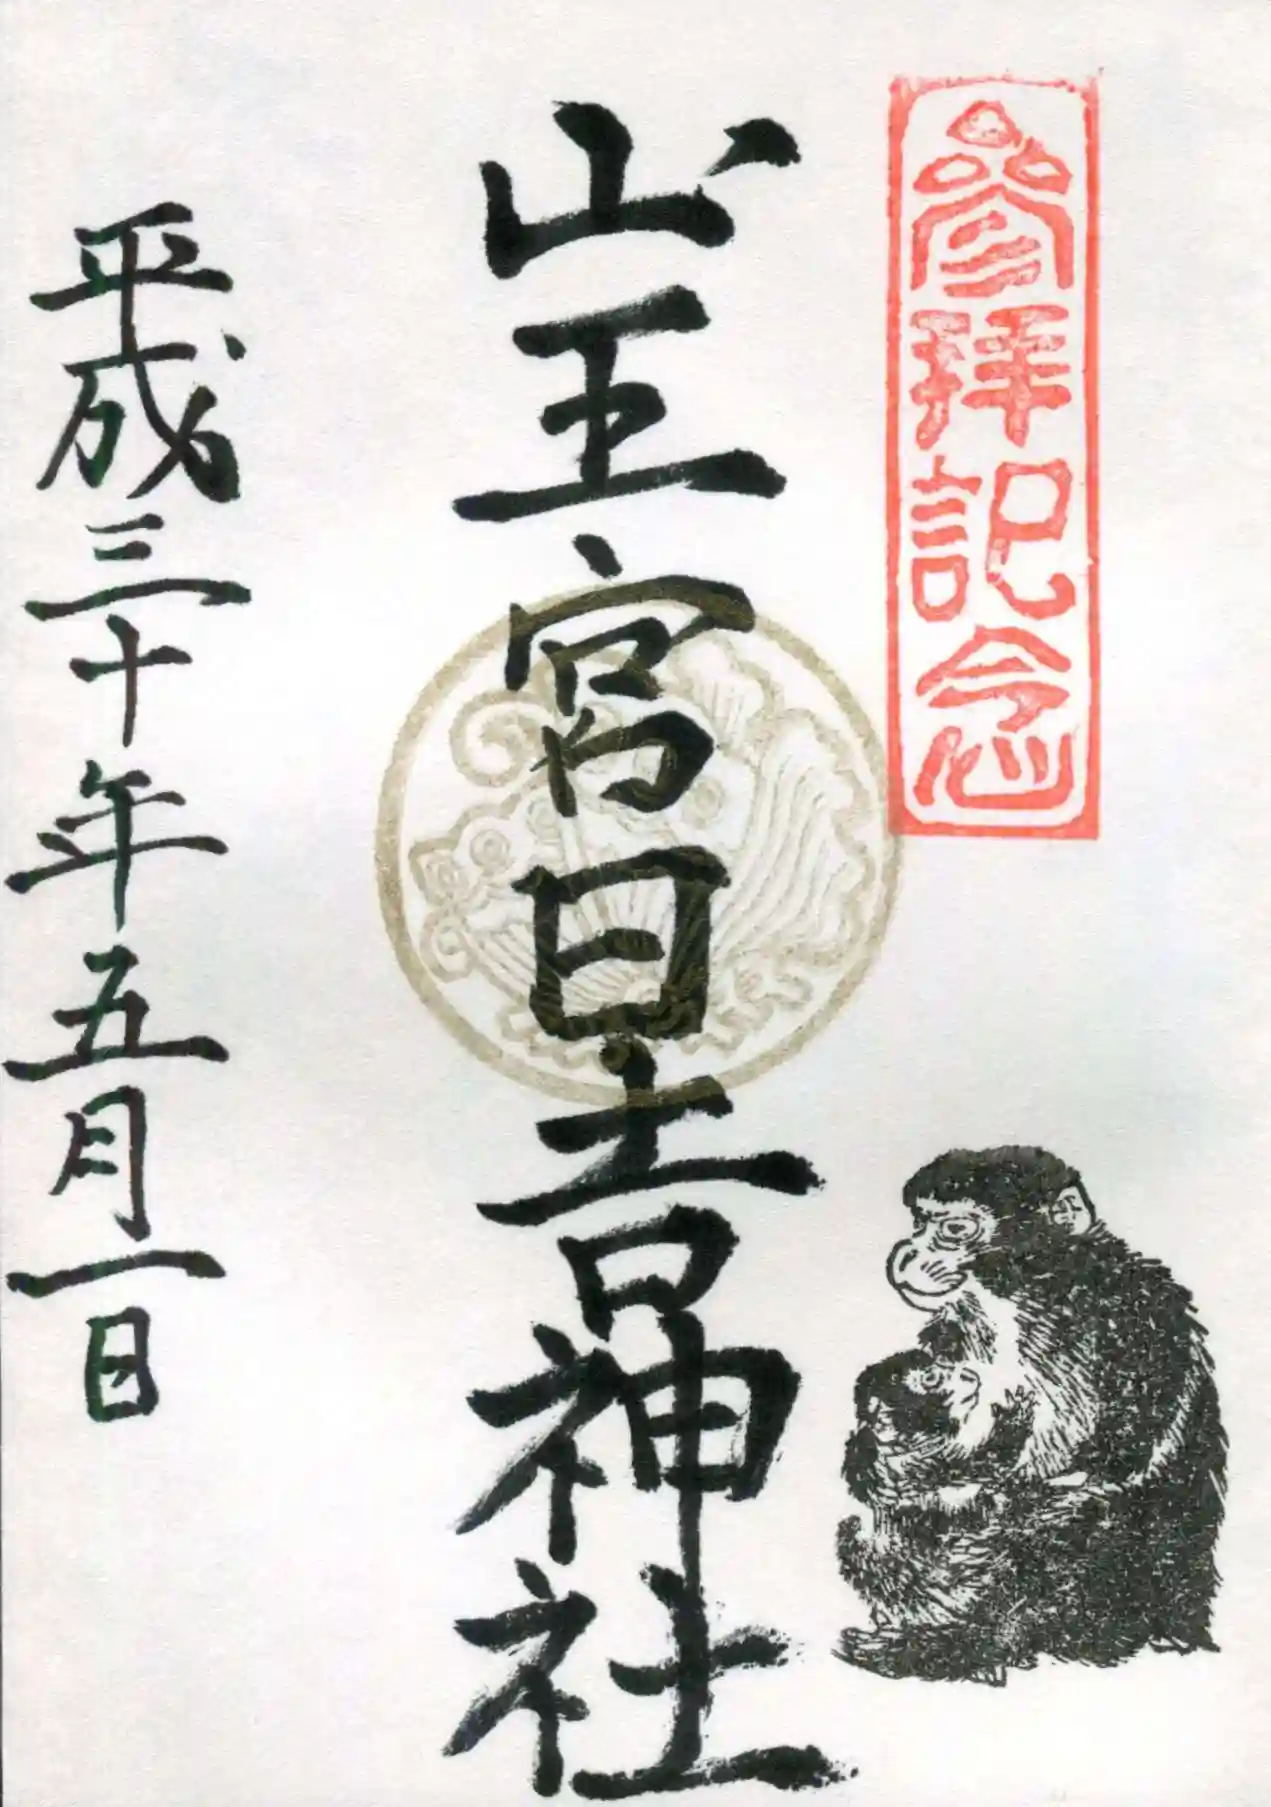 參拜記念
山王宮日吉神社
平成三十年五月一日